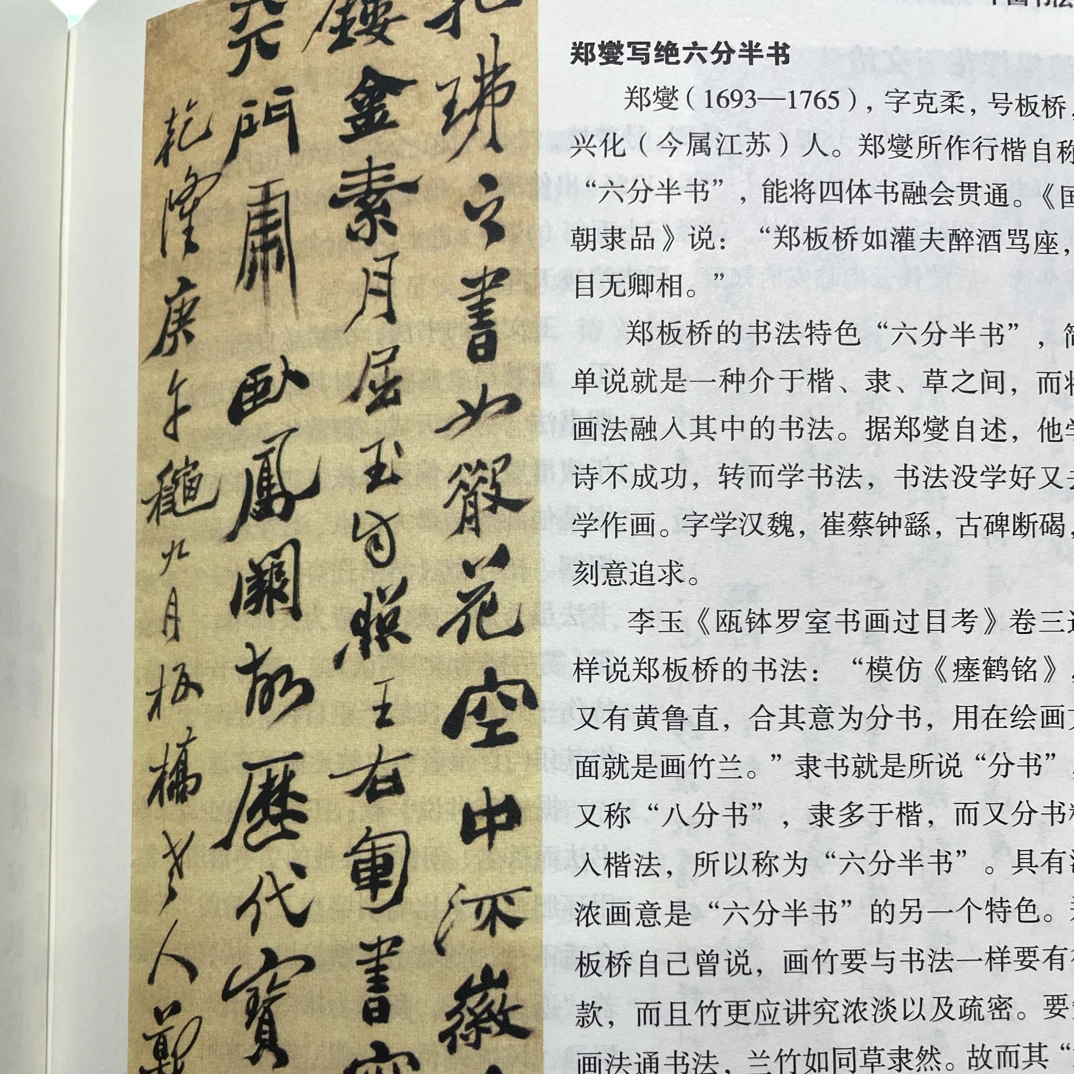 郑燮写绝六分半书
郑燮（1693—1765），字克柔，号板桥，
兴化（今属江苏）人。郑燮所作行楷自称
“六分半书”，能将四体书融会贯通。《国
朝隶品》说：“郑板桥如灌夫醉酒骂座，
目无卿相。”
郑板桥的书法特色“六分半书”，简
单说就是一种介于楷、隶、草之间，而将
画法融入其中的书法。据郑燮自述，他学
诗不成功，转而学书法，书法没学好又去
学作画。字学汉魏，崔蔡钟繇，古碑断碣，
刻意追求。
李玉《瓯钵罗室书画过目考》卷三这
样说郑板桥的书法：“模仿《瘗鹤铭》，
又有黄鲁直，合其意为分书，用在绘画方
面就是画竹兰。”隶书就是所说“分书”，
又称“八分书”，隶多于楷，而又分书糅
入楷法，所以称为“六分半书”。具有浓
浓画意是“六分半书”的另一个特色。郑
板桥自己曾说，画竹要与书法一样要有行
款，而且竹更应讲究浓淡以及疏密。要
画法通书法，兰竹如同草隶然。故而其“
琳之書如散花空中流徽
鏤金素月屈玉自照王右軍書字
天門虎臥鳳闕故歷代寶
乾隆庚午龝九月板橋老人鄭